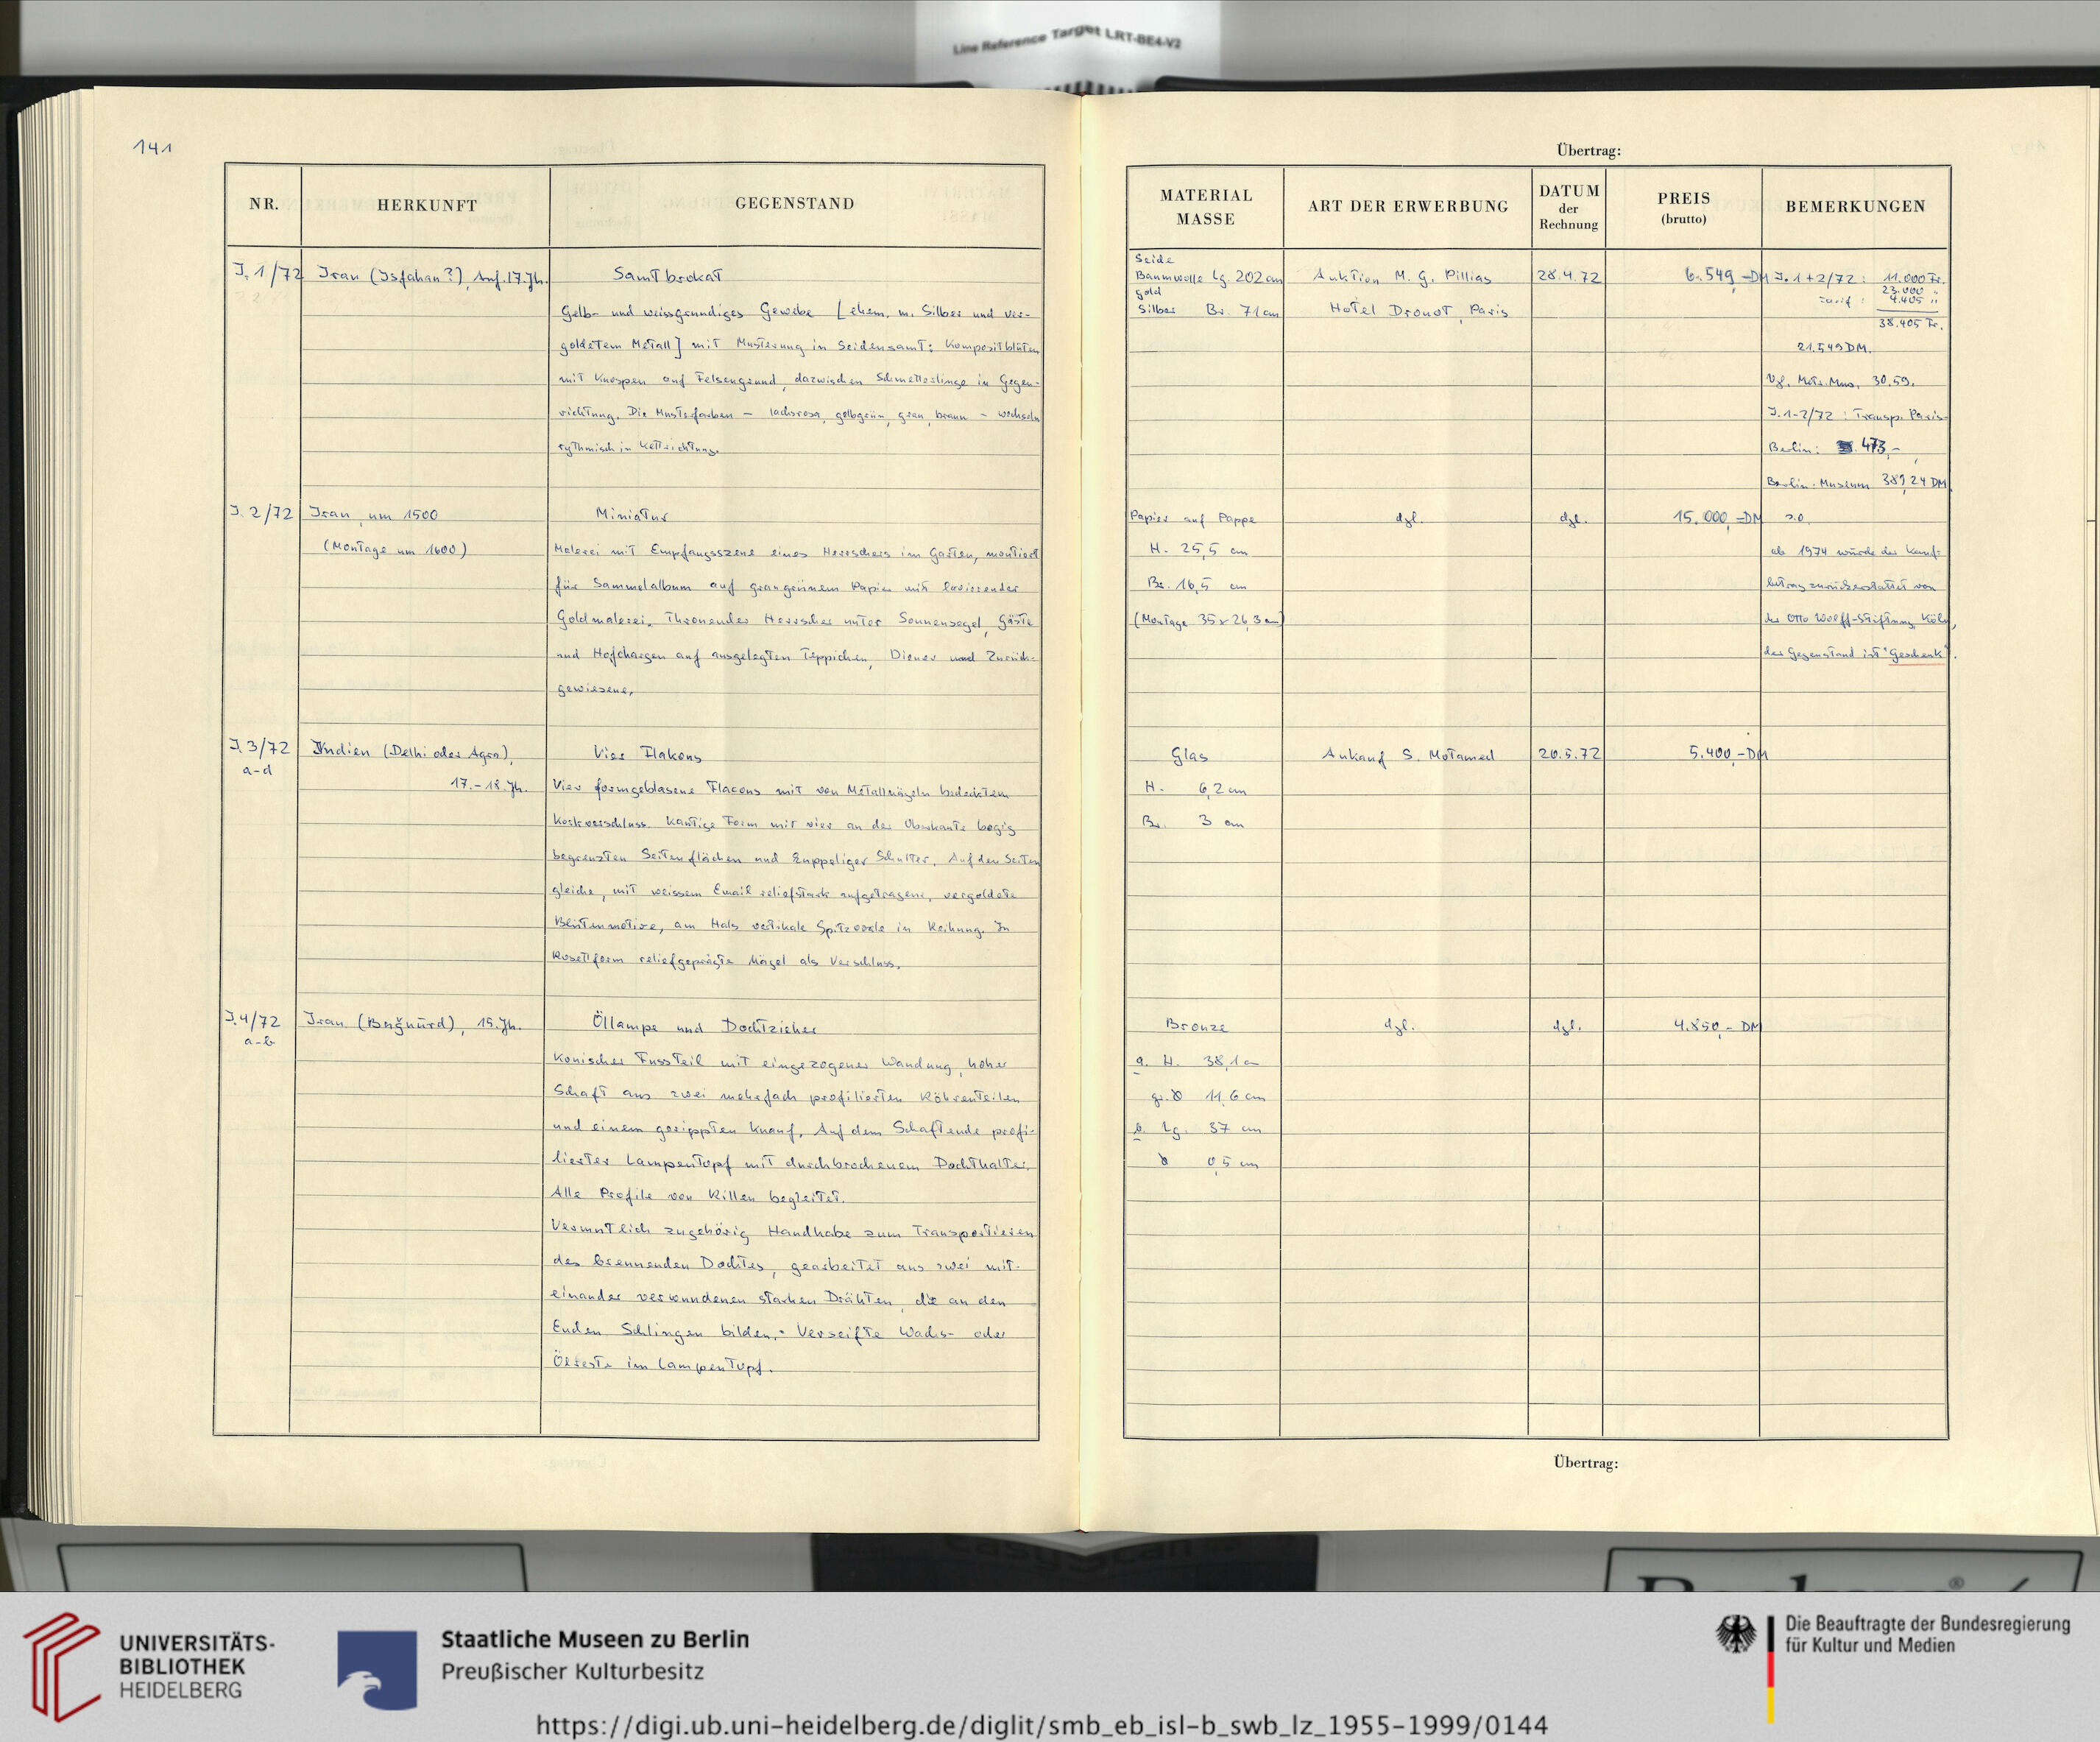 Line Reference Target LRT-BE4-V2
141
NR.
HERKUNFT
GEGENSTAND
J. 1/72
Iran (Isfahan?), Anf. 17. Jh.
Samtbrokat
Gelb- und weissgrundiges Gewebe [ehem. m. Silber und ver-
goldetem Metall] mit Musterung in Seidensamt: Kompositblüten
mit Knospen auf Felsengrund, dazwischen Schmetterlinge in Gegen-
richtung. Die Musterfarben – lachsrosa, gelbgrün, grau, braun – wechseln
rythmisch in Kettrichtung.
J. 2/72
Iran, um 1500
(Montage um 1600)
Miniatur
Malerei mit Empfangsszene eines Herrschers im Garten, montiert
für Sammelalbum auf graugrünem Papier mit lavierender
Goldmalerei. Thronender Herrscher unter Sonnensegel, Gäste
und Hofchargen auf ausgelegten Teppichen, Diener und Zurück-
gewiesene.
J. 3/72
a-d
Indien (Delhi oder Agra),
17.-18. Jh.
Vier Flakons
Vier formgeblasene Flacons mit von Metallnägeln bedecktem
Korkverschluss. Kantige Form mit vier an der Oberkante bogig
begrenzten Seitenflächen und kuppeliger Schulter. Auf den Seiten
gleiche, mit weissem Email reliefstark aufgetragene, vergoldete
Blütenmotive, am Hals vertikale Spitzovale in Reihung. In
Rosettform reliefgeprägte Nägel als Verschluss.
J. 4/72
a-b
Iran (Boǧnūrd), 15. Jh.
Öllampe und Dochtzieher
Konischer Fussteil mit eingezogener Wandung, hoher
Schaft aus zwei mehrfach profilierten Röhrenteilen
und einem gerippten Knauf. Auf dem Schaftende profi-
lierter Lampentopf mit durchbrochenem Dochthalter.
Alle Profile von Rillen begleitet.
Vermutlich zugehörig Handhabe zum Transportieren
des brennenden Dochtes, gearbeitet aus zwei mit-
einander verwundenen starken Drähten, die an den
Enden Schlingen bilden. - Verseifte Wachs- oder
Ölreste im Lampentopf.
Übertrag:
MATERIAL
MASSE
ART DER ERWERBUNG
DATUM
der
Rechnung
PREIS
(brutto)
BEMERKUNGEN
Seide
Baumwolle Lg. 202 cm
Gold
Silber Br. 71 cm
Auktion M. G. Pillias
Hotel Drouot, Paris
28.4.72
6.549,-DM
J. 1+2/72: 11.000 Fr.
23.000 "
Tarif: 4.405 "
38.405 Fr.
21.549 DM.
Vgl. Metr. Mus. 30.59.
J. 1-2/72: Transp. Paris-
Berlin: 473,-
Berlin-Museum 389,24 DM
Papier auf Pappe
H. 25,5 cm
Br. 16,5 cm
(Montage 35 x 26,3 cm)
dgl.
dgl.
15.000,-DM
s.o.
ab 1974 würde der Kauf-
betrag zurückerstattet von
der Otto Wolff-Stiftung, Köln,
der Gegenstand ist "Geschenk".
Glas
H. 6,2 cm
Br. 3 cm
Ankauf S. Motamed
20.5.72
5.400,-DM
Bronze
a. H. 38,1 cm
gr. Ø 11,6 cm
b. Lg. 37 cm
Ø 0,5 cm
dgl.
dgl.
4.850,- DM
Übertrag:
UNIVERSITÄTS-
BIBLIOTHEK
HEIDELBERG
Staatliche Museen zu Berlin
Preußischer Kulturbesitz
Die Beauftragte der Bundesregierung
für Kultur und Medien
https://digi.ub.uni-heidelberg.de/diglit/smb_eb_isl-b_swb_lz_1955-1999/0144